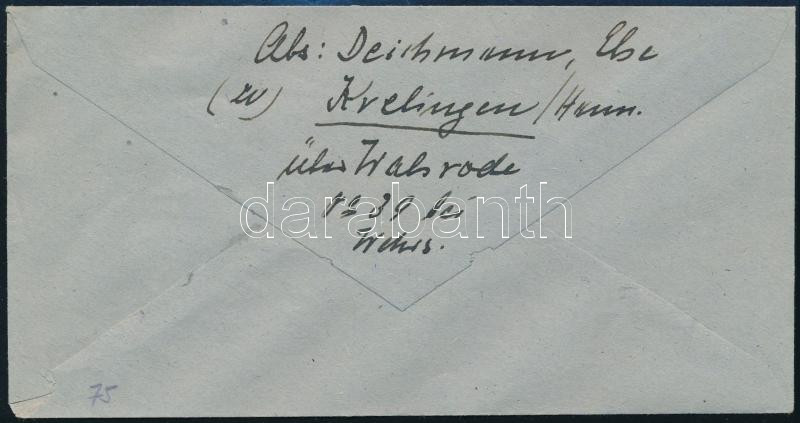 Abs: Deichmann, Else
(20) Krelingen/Hann.
über Walsrode
No 39 bei
darabanth
Wehrs.
75